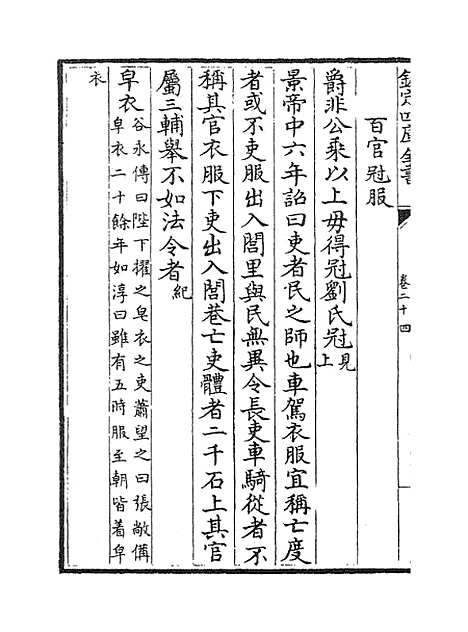 欽定四庫全書
卷二十四
百官冠服
爵非公乘以上毋得冠劉氏冠見上
景帝中六年詔曰吏者民之師也車駕衣服宜稱亡度
者或不吏服出入閭里與民無異令長吏車騎從者不
稱其官衣服下吏出入閭巷亡吏體者二千石上其官
屬三輔舉不如法令者紀
皁衣谷永傳曰陛下擢之皁衣之吏蕭望之曰張敞備
皁衣二十餘年如淳曰雖有五時服至朝皆着皁
衣